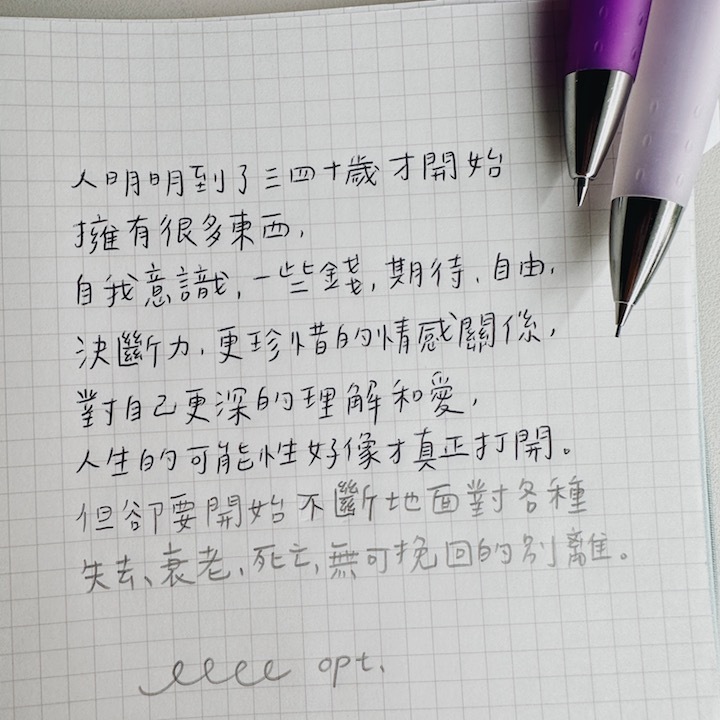 人明明到了三四十歲才開始
擁有很多東西，
自我意識，一些錢，期待、自由，
決斷力，更珍惜的情感關係，
對自己更深的理解和愛，
人生的可能性好像才真正打開。
但卻要開始不斷地面對各種
失去、衰老、死亡，無可挽回的別離。
opt.